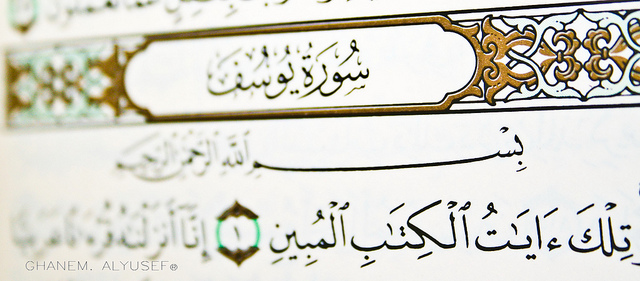 سُورَةُ يُوسُفَ
بِسْمِ ٱللَّهِ ٱلرَّحْمَٰنِ ٱلرَّحِيمِ
تِلْكَ ءَايَٰتُ ٱلْكِتَٰبِ ٱلْمُبِينِ ١ إِنَّآ أَنزَلْنَٰهُ قُرْءَٰنًا عَرَبِيًّا
GHANEM. ALYUSEF®